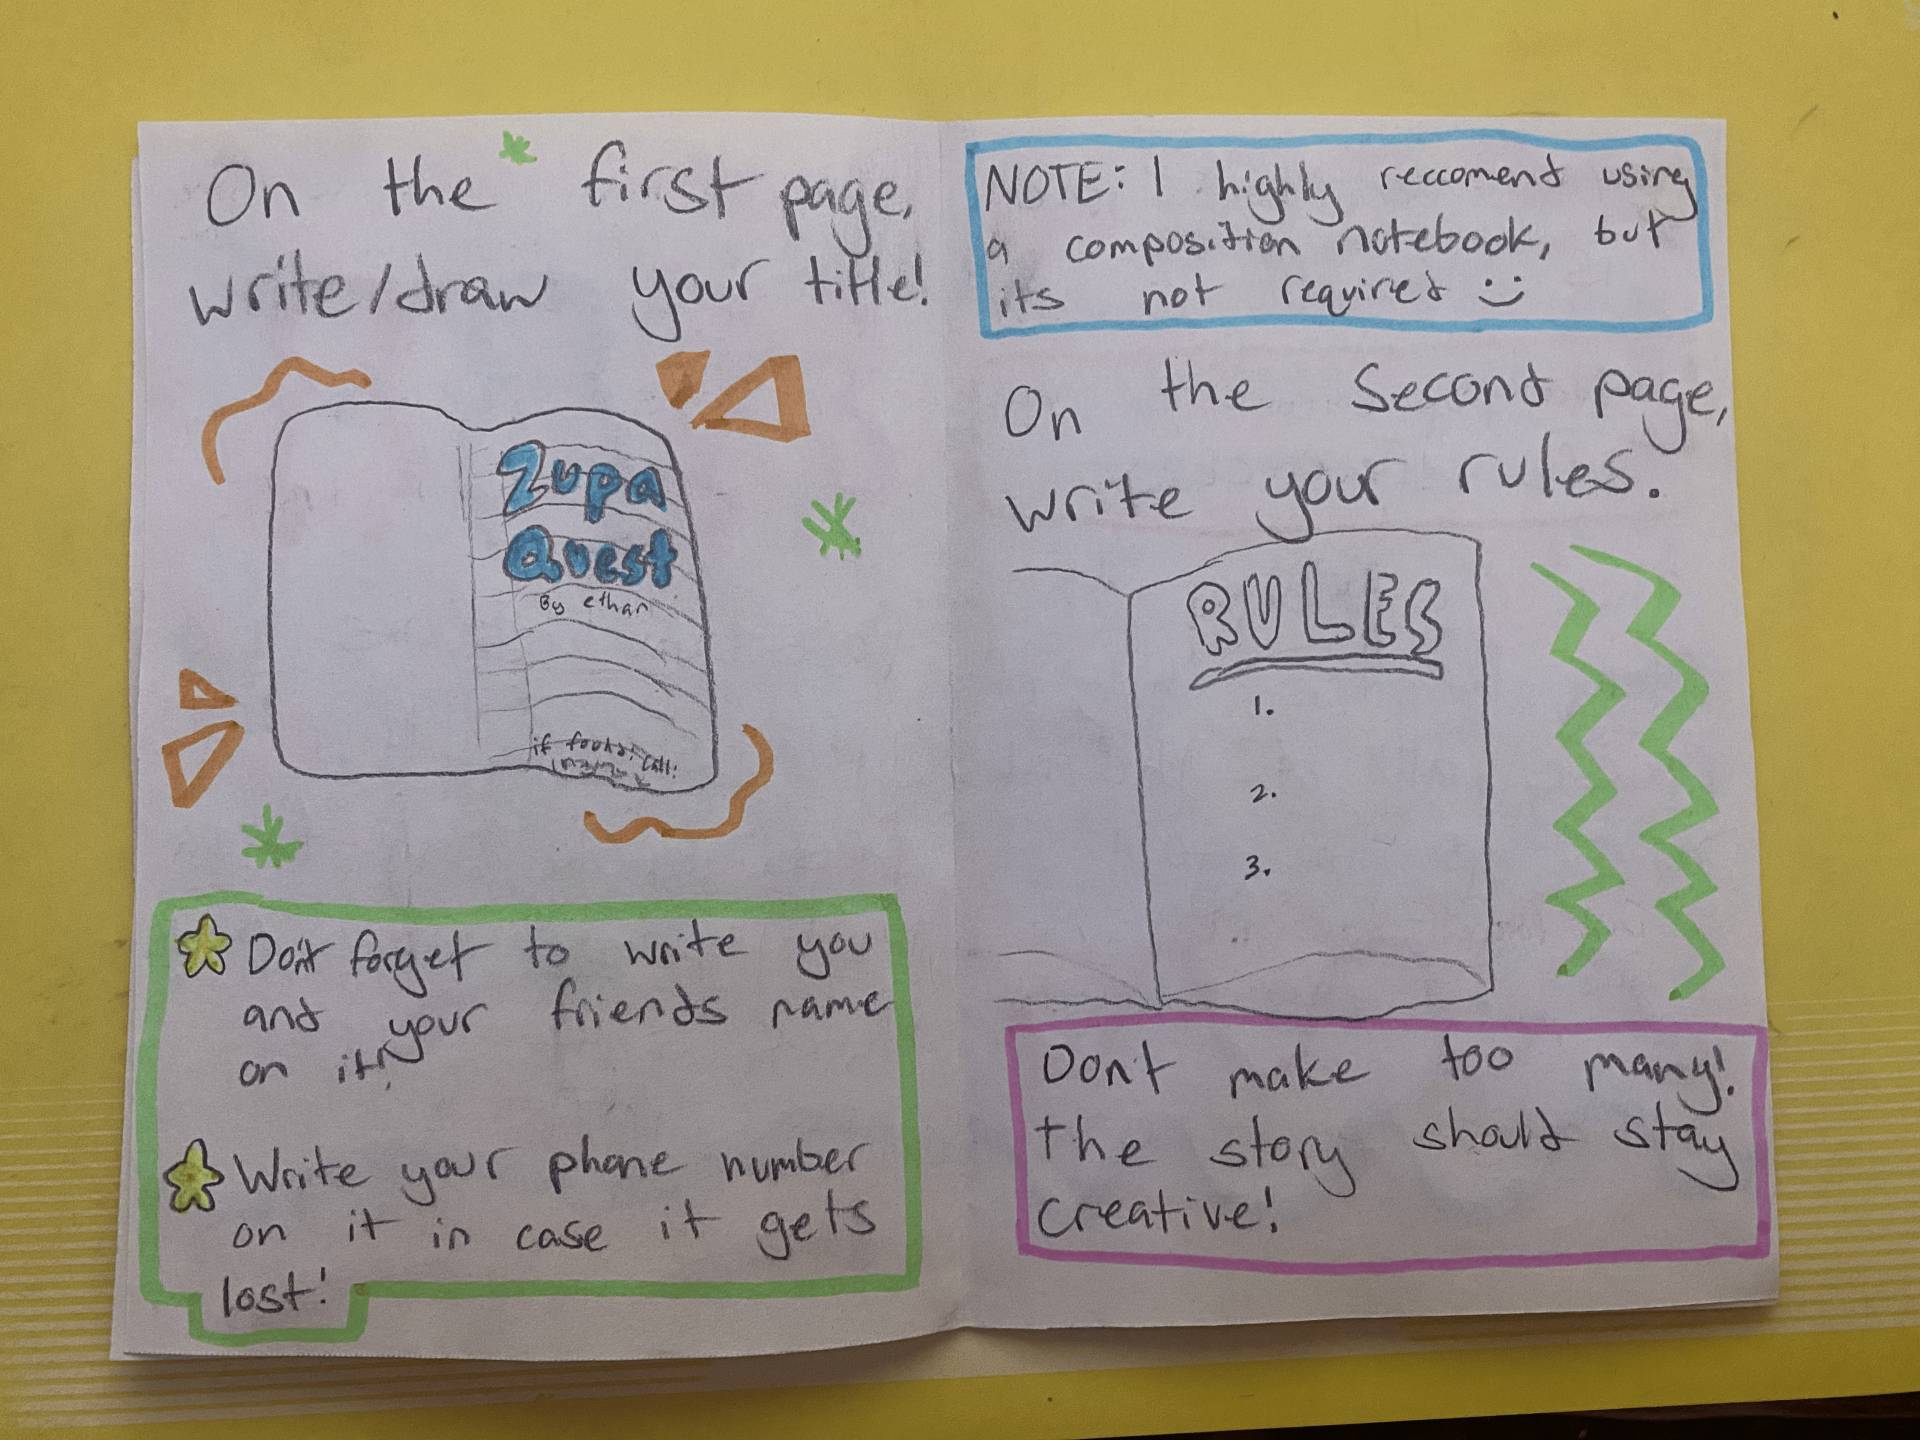 On the first page,
write/draw your title!
Zupa
Quest
By ethan
if found: call:
Don't forget to write you
and your friends name
on it!
Write your phone number
on it in case it gets
lost!
NOTE: I highly reccomend using
a composition notebook, but
its not required :)
On the Second page,
write your rules.
RULES
1.
2.
3.
Don't make too many!
the story should stay
creative!